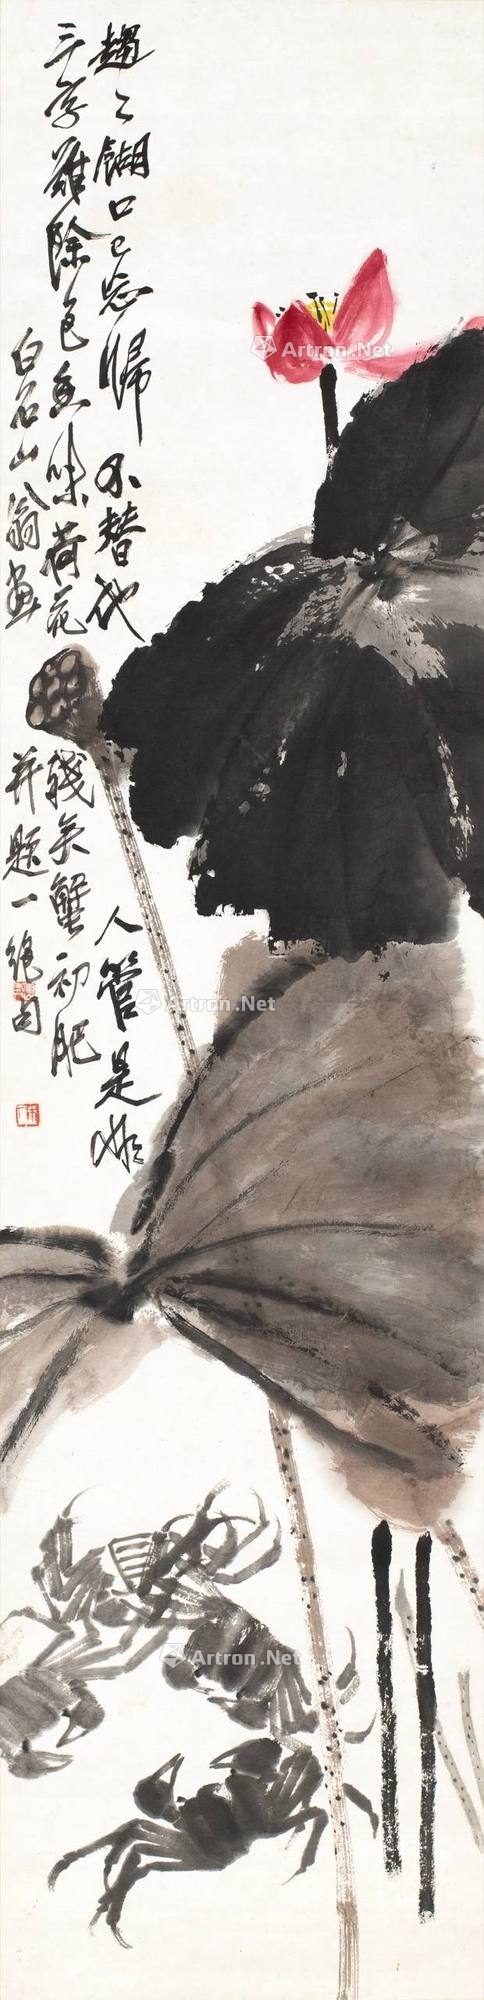 趨〻餬口已忘歸不替他人管是非
三字難除色香味荷花殘矣蟹初肥
白石山翁畫并題一絕句
Artron.Net
Artron.Net
Artron.Net
Artron.Net